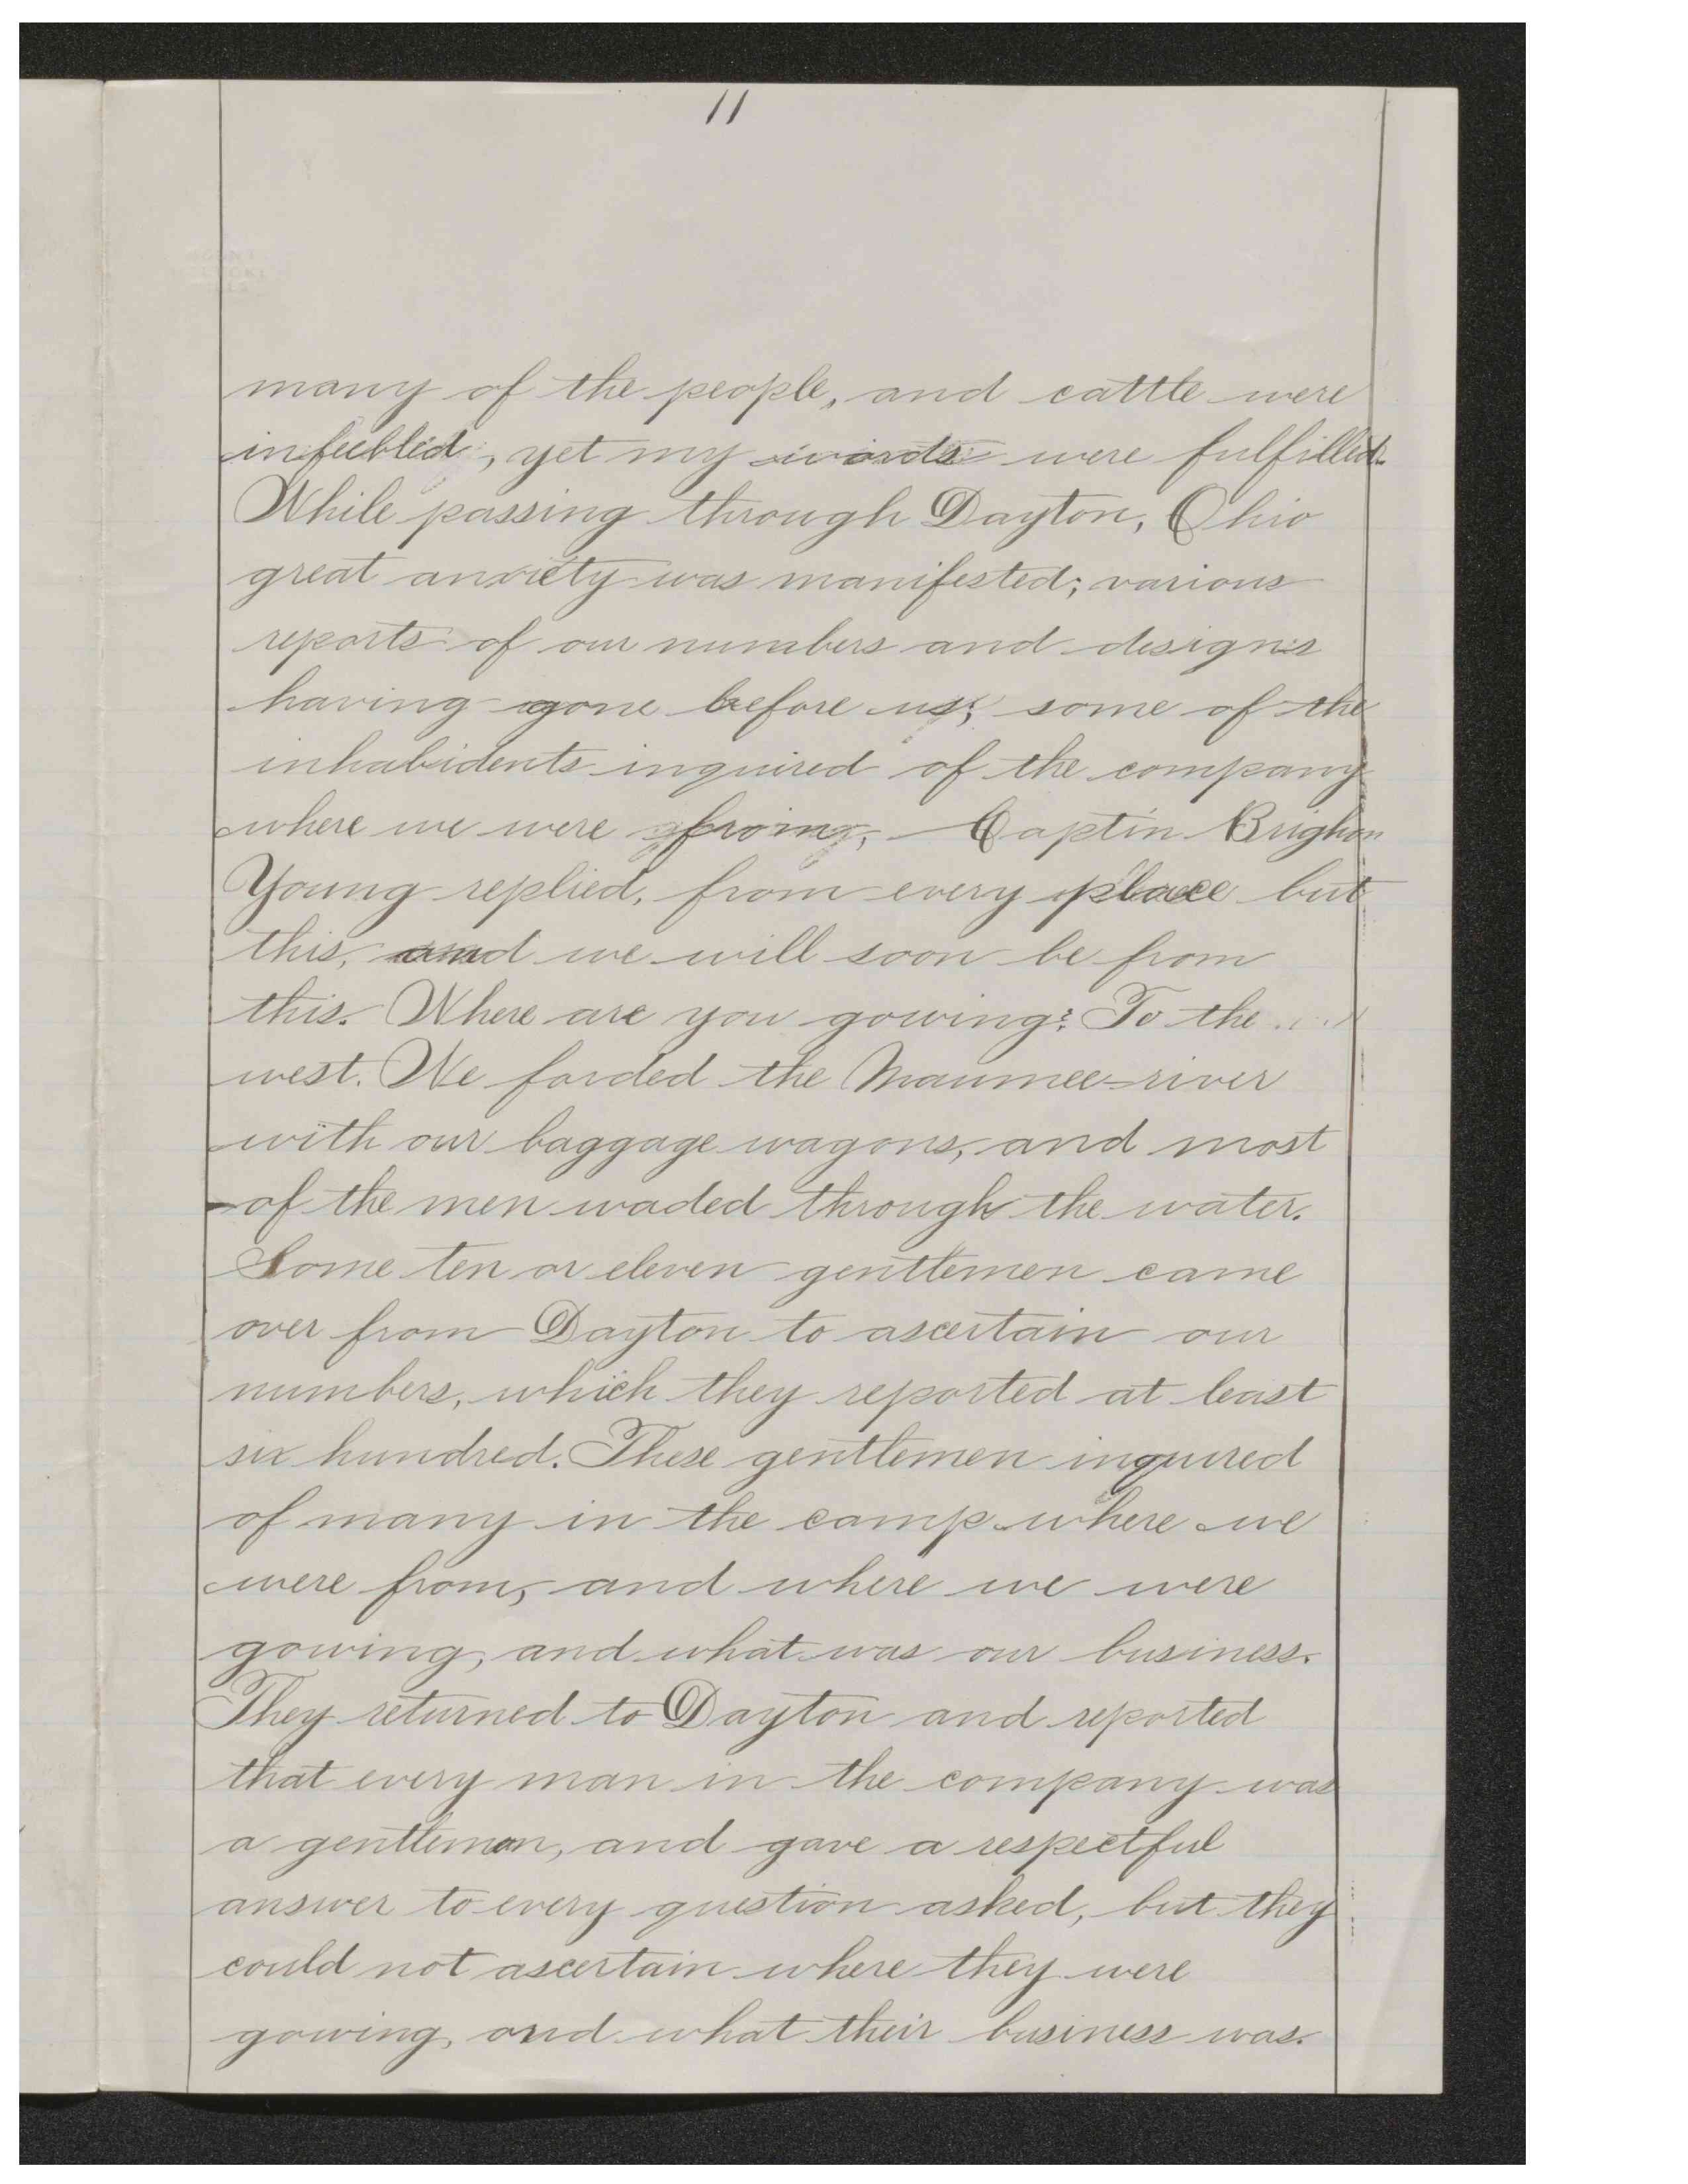 11
many of the people, and cattle were
infeebled, yet my words were fulfilled.
While passing through Dayton, Ohio
great anxiety was manifested; various
reports of our numbers and designs
having gone before us; some of the
inhabidents inquired of the company
where we were from, Captin Brighon
Young replied, from every place but
this, and we will soon be from
this. Where are you gowing? To the
west. We forded the Maumee-river
with our baggage wagons, and most
of the men waded through the water.
Some ten or eleven gentlemen came
over from Dayton to ascertain our
numbers, which they reported at least
six hundred. These gentlemen inquired
of many in the camp where we
were from, and where we were
gowing, and what was our business.
They returned to Dayton and reported
that every man in the company was
a gentleman, and gave a respectful
answer to every question asked, but they
could not ascertain where they were
gowing, and what their business was.